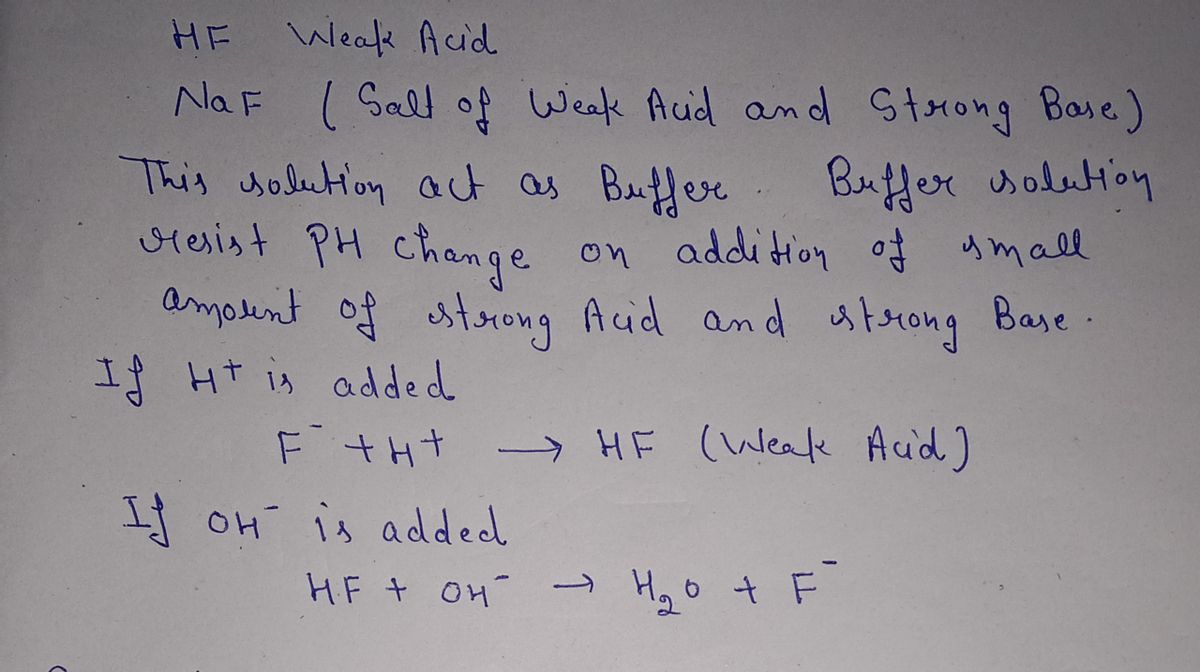 HF Weak Acid
NaF ( Salt of Weak Acid and Strong Base)
This solution act as Buffer. Buffer solution
resist PH change on addition of small
amount of strong Acid and strong Base.
If H+ is added
F⁻ + H+ → HF (Weak Acid)
If OH⁻ is added
HF + OH⁻ → H₂O + F⁻